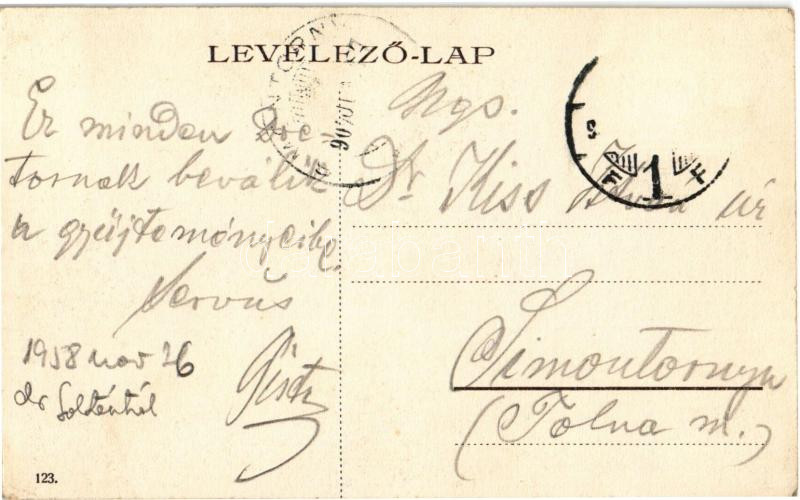 LEVELEZŐ-LAP
Ez minden Doc
tornak beválik
a gyűjteményeibe.
Servus
Pista
1958 nov 26
dr
Ngs.
Dr. Kiss István úr
Simontornya
(Tolna m.)
123.